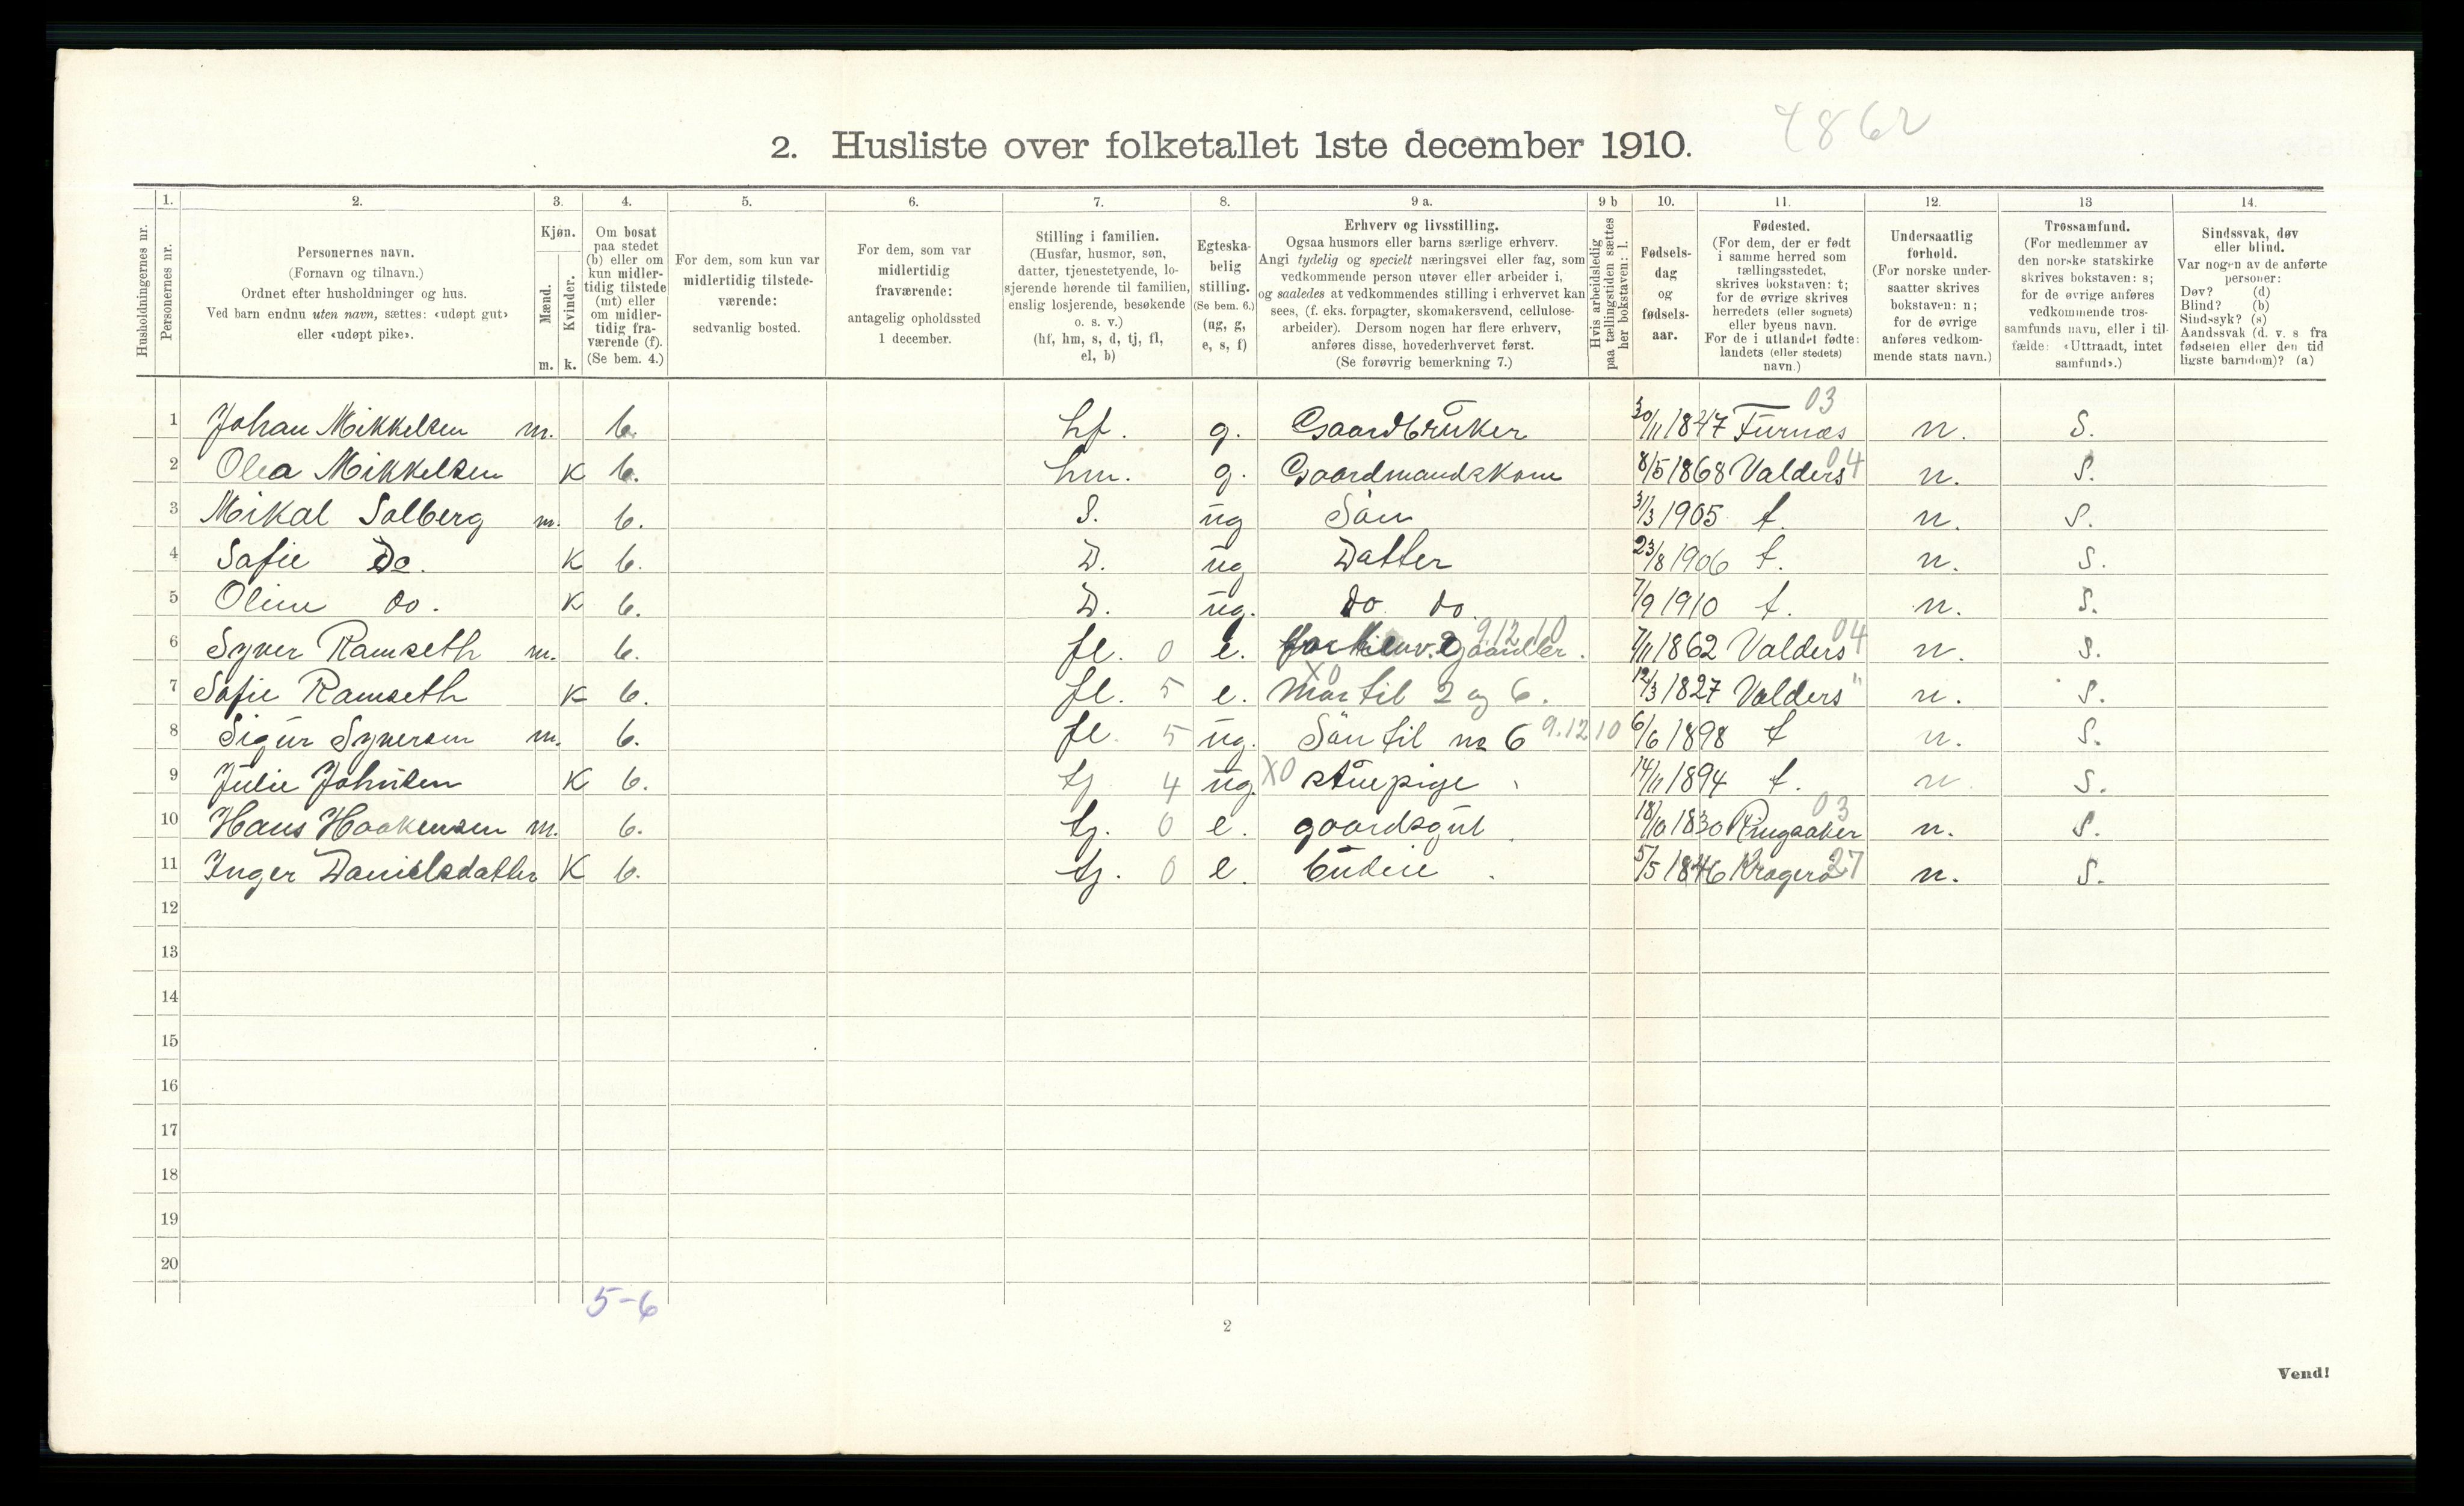 4862
2. Husliste over folketallet 1ste december 1910.
1. 2. 3. 4. 5. 6. 7. 8. 9 a. 9 b 10. 11. 12. 13 14.
Husholdningernes nr.
Personernes nr.
Personernes navn.
(Fornavn og tilnavn.)
Ordnet efter husholdninger og hus.
Ved barn endnu uten navn, sættes: «udøpt gut»
eller «udøpt pike».
Kjøn.
Mænd.
Kvinder.
m. k.
Om bosat
paa stedet
(b) eller om
kun midler-
tidig tilstede
(mt) eller
om midler-
tidig fra-
værende (f).
(Se bem. 4.)
For dem, som kun var
midlertidig tilstede-
værende:
sedvanlig bosted.
For dem, som var
midlertidig
fraværende:
antagelig opholdssted
1 december.
Stilling i familien.
(Husfar, husmor, søn,
datter, tjenestetyende, lo-
sjerende hørende til familien,
enslig losjerende, besøkende
o. s. v.)
(hf, hm, s, d, tj, fl,
el, b)
Egteska-
belig
stilling.
(Se bem. 6.)
(ug, g,
e, s, f)
Erhverv og livsstilling.
Ogsaa husmors eller barns særlige erhverv.
Angi tydelig og specielt næringsvei eller fag, som
vedkommende person utøver eller arbeider i,
og saaledes at vedkommendes stilling i erhvervet kan
sees, (f. eks. forpagter, skomakersvend, cellulose-
arbeider). Dersom nogen har flere erhverv,
anføres disse, hovederhvervet først.
(Se forøvrig bemerkning 7.)
Hvis arbeidsledig
paa tællingstiden sættes
her bokstaven: l.
Fødsels-
dag
og
fødsels-
aar.
Fødested.
(For dem, der er født
i samme herred som
tællingsstedet,
skrives bokstaven: t;
for de øvrige skrives
herredets (eller sognets)
eller byens navn.
For de i utlandet fødte:
landets (eller stedets)
navn.)
Undersaatlig
forhold.
(For norske under-
saatter skrives
bokstaven: n;
for de øvrige
anføres vedkom-
mende stats navn.)
Trossamfund.
(For medlemmer av
den norske statskirke
skrives bokstaven: s;
for de øvrige anføres
vedkommende tros-
samfunds navn, eller i til-
fælde: «Uttraadt, intet
samfund».)
Sindssvak, døv
eller blind.
Var nogen av de anførte
personer:
Døv? (d)
Blind? (b)
Sindssyk? (s)
Aandssvak (d. v. s fra
fødselen eller den tid
ligste barndom)? (a)
1 Johan Mikkelsen m. b. hf. g. Gaardbruker 30/11 1847 Furnæs 03 n. S.
2 Olea Mikkelsen K b. hm. g. Gaardmandskone 8/5 1868 Valders 04 n. S.
3 Mikal Solberg m. b. S. ug Sön 31/3 1905 t. n. S.
4 Safie Do. K b. D. ug Datter 23/8 1906 t. n. S.
5 Oline do. K b. D. ug. do do 7/9 1910 t. n. S.
6 Syver Ramseth m. b. fl. 0 e. 9.12.10 7/11 1862 Valders 04 n. S.
7 Safie Ramseth K b. fl. 5 e. X0 Mor til 2 og 6. 12/3 1827 Valders " n. S.
8 Sigur Syversen m. b. fl. 5 ug. Sön til no 6 9.12 10 6/6 1898 t n. S.
9 Julie Johnsen K b. tj 4 ug. X0 stuepige 14/11 1894 t. n S.
10 Hans Haakensen m. b. tj. 0 e. gaardsgut 18/10 1830 Ringsaker 03 n. S.
11 Inger Danielsdatter K b. tj. 0 e. budeie 5/5 1846 Kragerø 27 n. S.
12
13
14
15
16
17
18
19
20
5-6
2
Vend!